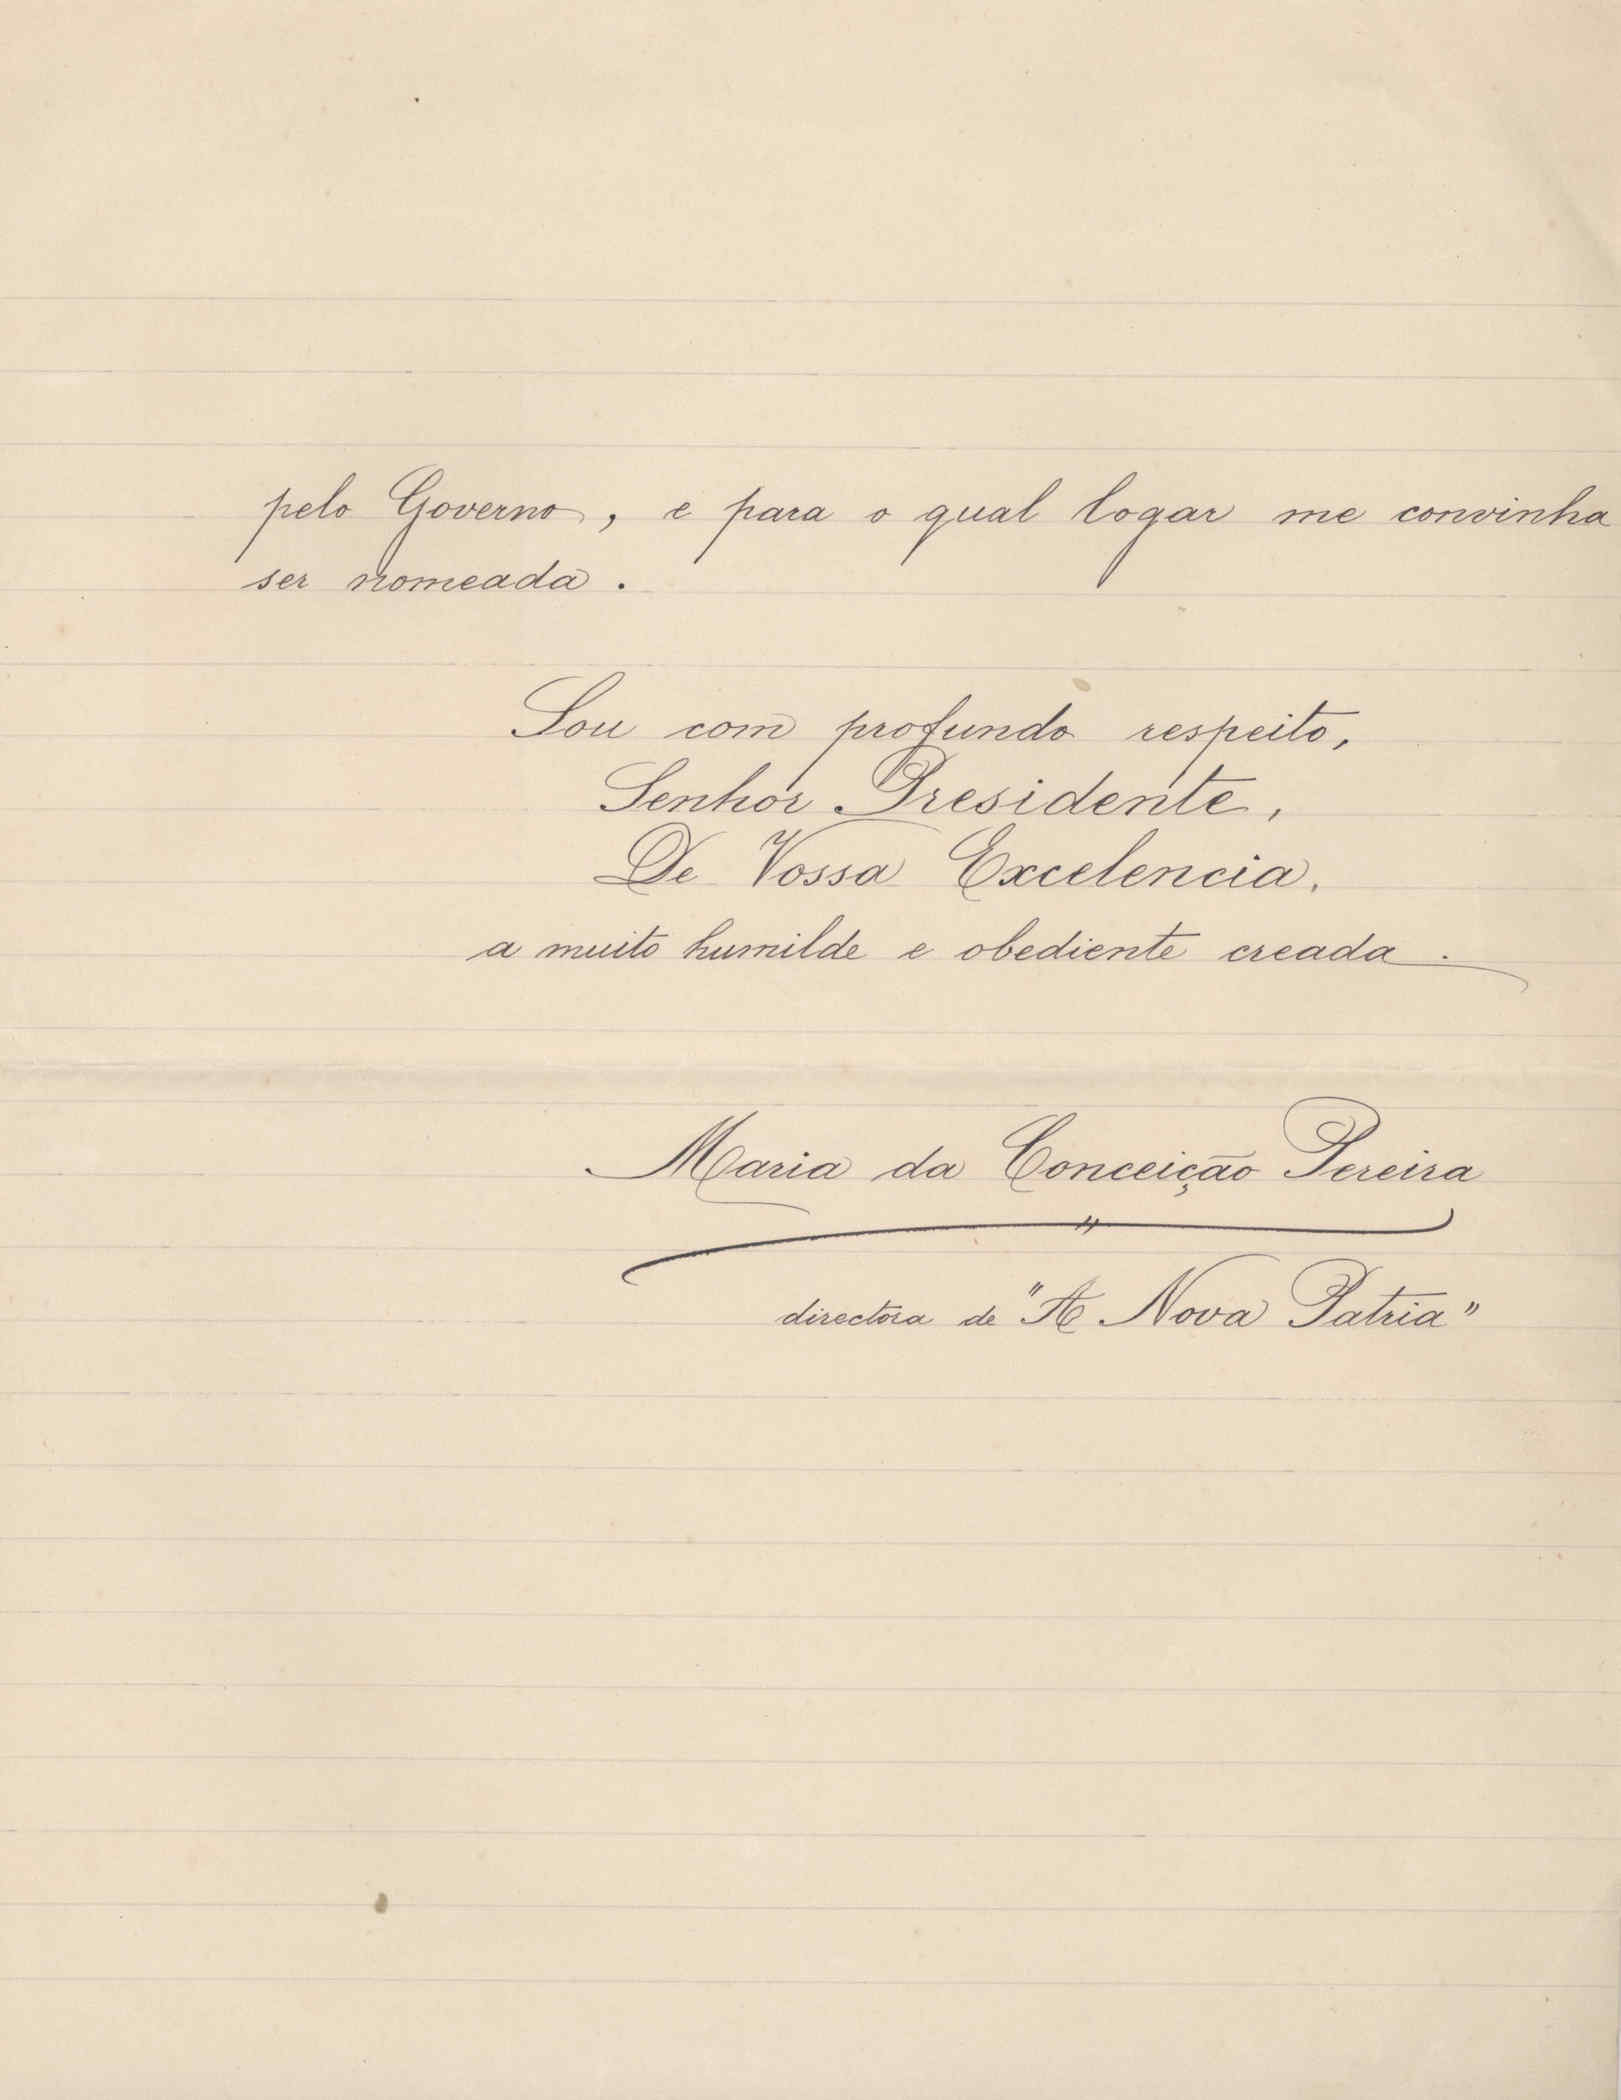 pelo Governo, e para o qual logar me convinha
ser nomeada.
Sou com profundo respeito,
Senhor Presidente,
De Vossa Excelencia,
a muito humilde e obediente creada.
Maria da Conceição Pereira
directora de "A Nova Patria"